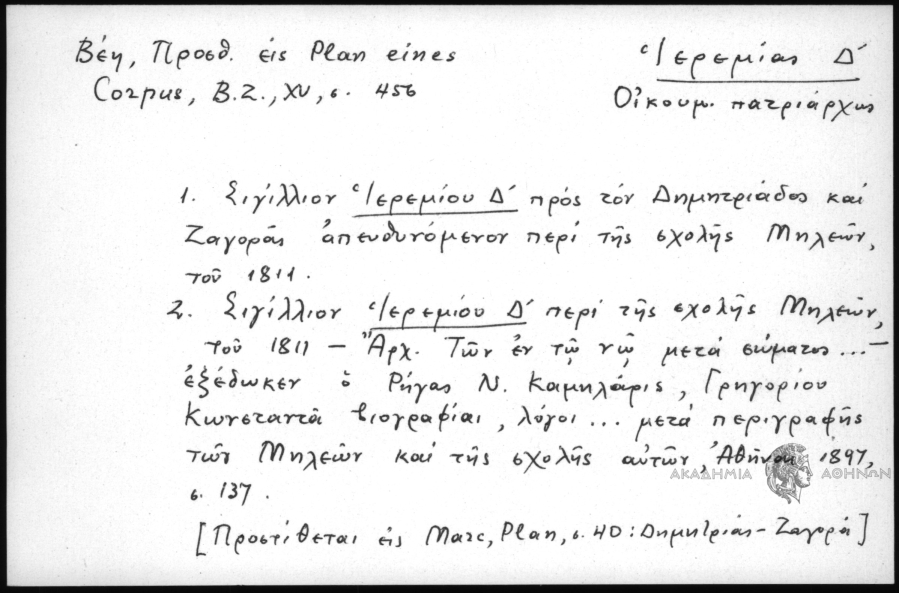 Βέη, Προσθ. εἰς Plan eines
Corpus, B.Z., XV, σ. 456
Ἱερεμίας Δ΄
Οἰκουμ. πατριάρχης
1. Σιγίλλιον Ἱερεμίου Δ΄ πρός τόν Δημητριάδος καί
Ζαγορᾶς ἀπευθυνόμενον περί τῆς σχολῆς Μηλεῶν,
τοῦ 1811.
2. Σιγίλλιον Ἱερεμίου Δ΄ περί τῆς σχολῆς Μηλεῶν,
τοῦ 1811 – Ἀρχ. Τῶν ἐν τῷ νῷ μετά σώματος ... –
ἐξέδωκεν ὁ Ρήγας Ν. Καμηλάρις, Γρηγορίου
Κωνσταντᾶ βιογραφίαι, λόγοι ... μετά περιγραφῆς
τῶν Μηλεῶν καί τῆς σχολῆς αὐτῶν, Ἀθῆναι 1897,
σ. 137.
[Προστίθεται εἰς Marc, Plan, σ. 40: Δημητριάς – Ζαγορά]
ΑΚΑΔΗΜΙΑ ΑΘΗΝΩΝ